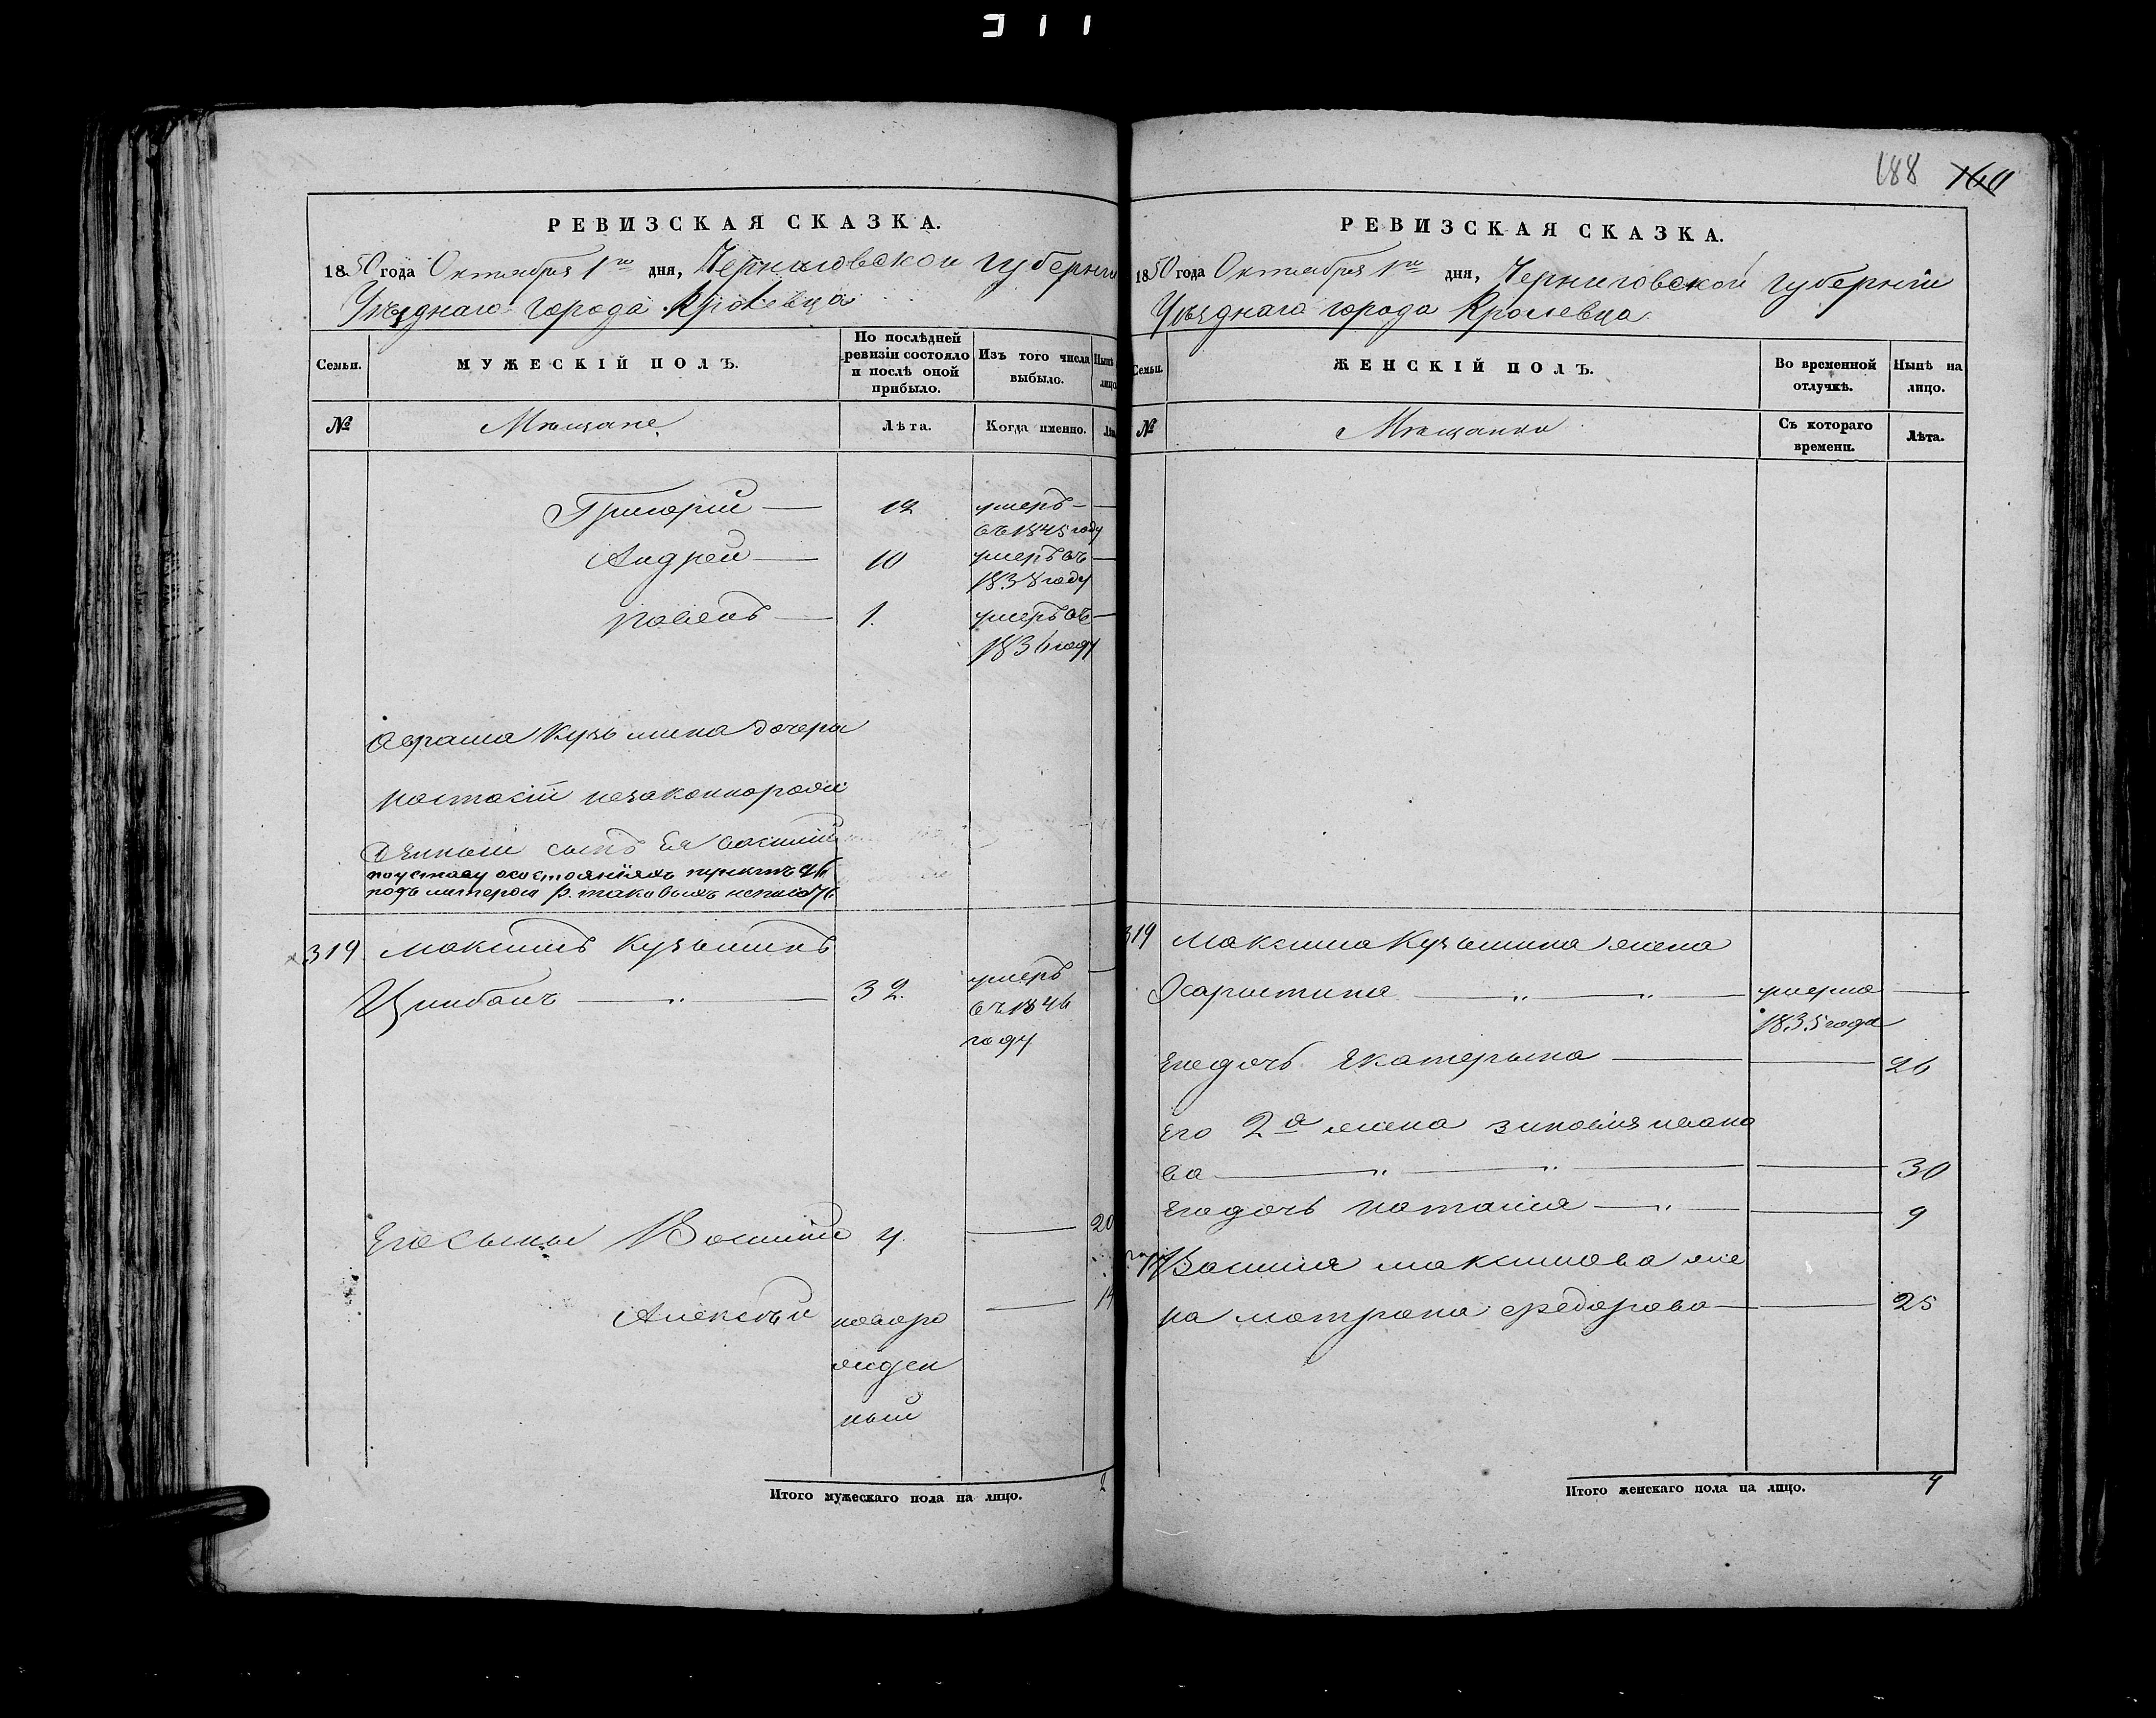 311
РЕВИЗСКАЯ СКАЗКА.
1850 года Октября 1го дня, Черниговской губерніи
Уѣзднаго города Кролевца
Семьи. МУЖЕСКІЙ ПОЛЪ. По послѣдней ревизіи состояло и послѣ оной прибыло. Изъ того числа выбыло. Нынѣ лицо
№ Мѣщане Лѣта. Когда именно. Лѣта
Григорій — 12 умеръ —
въ 1845 году
Андрей — 10 умеръ въ —
1838 году
Павелъ — 1. умеръ въ —
1836 году
Аврама Кузьмина дочери
Настасіи незаконнорож
денный сынъ Ея Василій
по уставу о состояніяхъ пунктъ
подъ литерою
319 Максимъ Кузьминъ
Цимбалъ — 〃 — 32. умеръ —
въ 1846
году
Его сыны Василій 4. — 20
Алексѣй новоро — 14
жден
ный
Итого мужескаго пола на лицо. 2
188 160
РЕВИЗСКАЯ СКАЗКА.
1850 года Октября 1го дня, Черниговской губерніи
Уѣзднаго города Кролевца
Семьи. ЖЕНСКІЙ ПОЛЪ. Во временной отлучкѣ. Нынѣ на лицо.
№ Мѣщанки Съ котораго времени. Лѣта.
319 Максима Кузьмина жена
Харитина — 〃 — 〃 — умерла —
1835 года
Его дочь Екатерына — — 26
Его 2я жена Зиновія Ивано
ва — 〃 — 〃 — — 30
Его дочь Наталия — 〃 — — 9
Василия Максимова же
на Матрона Федорова — — 25
Итого женскаго пола на лицо. 4